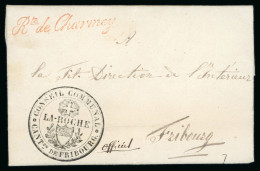 Rte de Charmey
la Ft. Direction de l'Intérieur
CONSEIL COMMUNAL
LA-ROCHE
CANTON DE FRIBOURG.
officiel
Fribourg